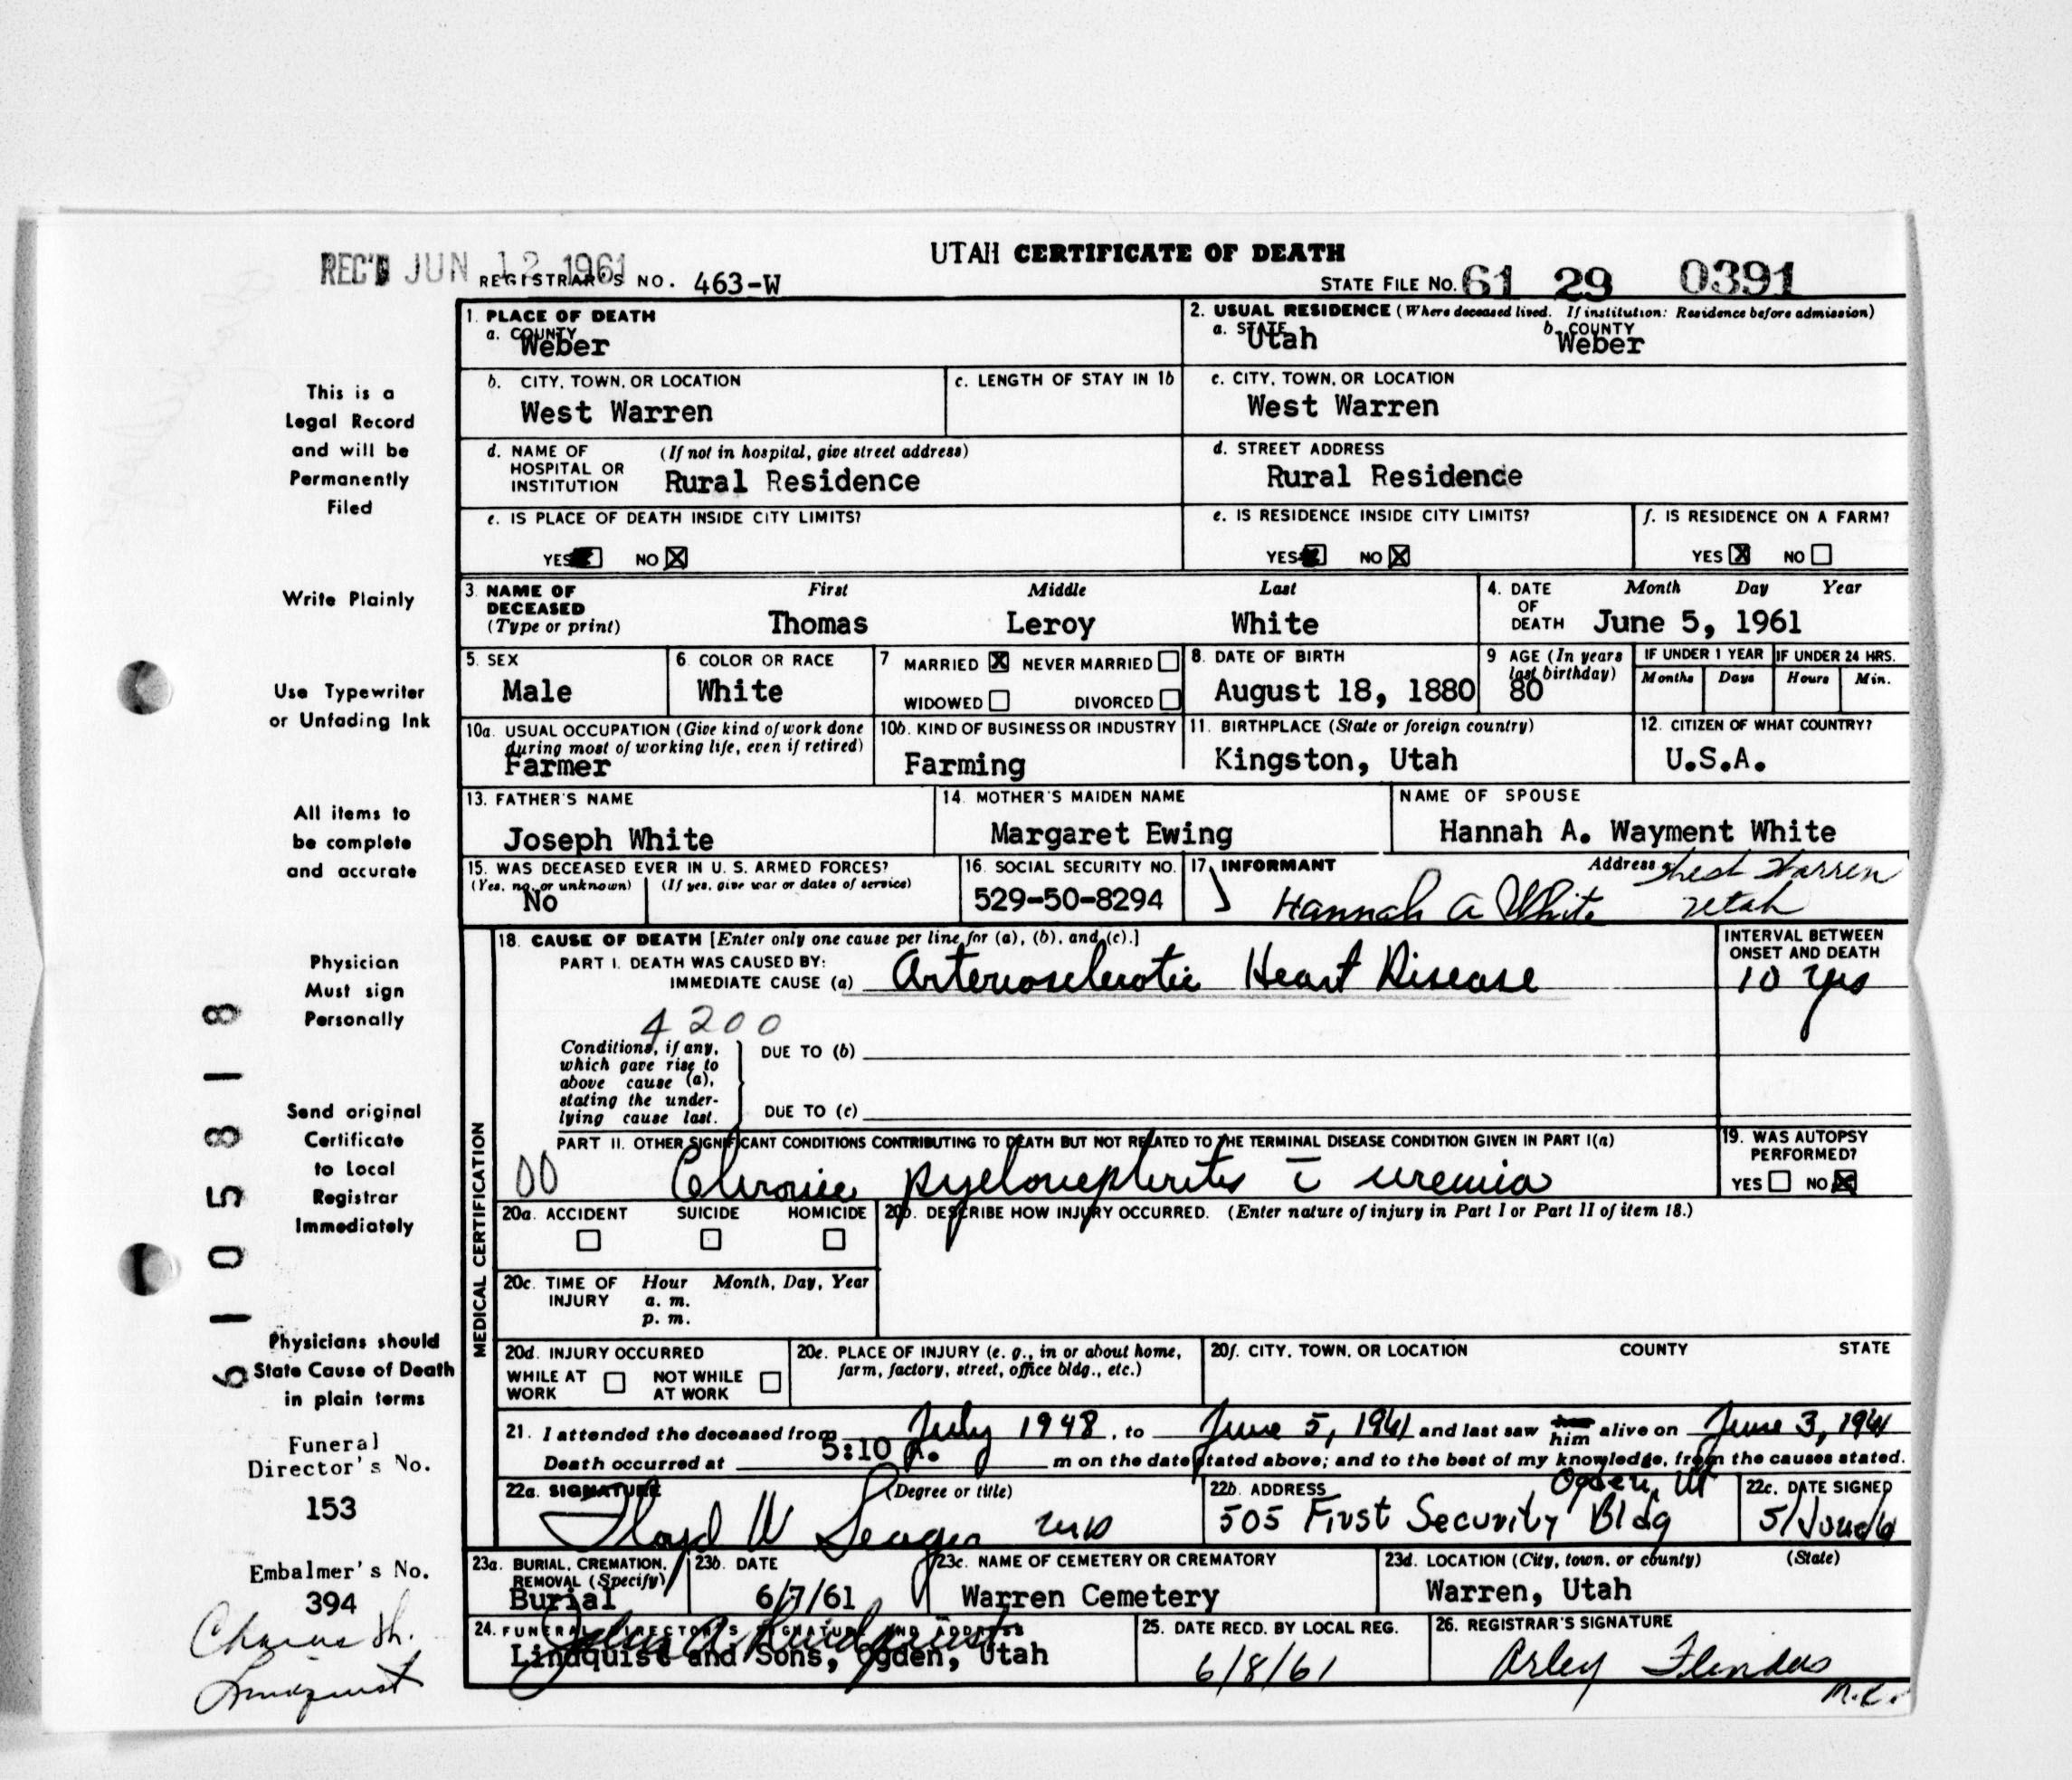 UTAH CERTIFICATE OF DEATH
REC'D JUN 12 1961
REGISTRAR'S NO. 463-W
STATE FILE NO. 61 29 0391
1. PLACE OF DEATH
a. COUNTY
Weber
2. USUAL RESIDENCE (Where deceased lived. If institution: Residence before admission)
a. STATE
Utah
b. COUNTY
Weber
b. CITY, TOWN, OR LOCATION
West Warren
c. LENGTH OF STAY IN 1b
c. CITY, TOWN, OR LOCATION
West Warren
d. NAME OF HOSPITAL OR INSTITUTION
(If not in hospital, give street address)
Rural Residence
d. STREET ADDRESS
Rural Residence
e. IS PLACE OF DEATH INSIDE CITY LIMITS?
YES NO X
e. IS RESIDENCE INSIDE CITY LIMITS?
YES NO X
f. IS RESIDENCE ON A FARM?
YES X NO
3. NAME OF DECEASED (Type or print)
First Middle Last
Thomas Leroy White
4. DATE OF DEATH
Month Day Year
June 5, 1961
5. SEX
Male
6. COLOR OR RACE
White
7 MARRIED X NEVER MARRIED
WIDOWED DIVORCED
8. DATE OF BIRTH
August 18, 1880
9 AGE (In years last birthday)
80
IF UNDER 1 YEAR
Months Days
IF UNDER 24 HRS.
Hours Min.
10a. USUAL OCCUPATION (Give kind of work done during most of working life, even if retired)
Farmer
10b. KIND OF BUSINESS OR INDUSTRY
Farming
11. BIRTHPLACE (State or foreign country)
Kingston, Utah
12. CITIZEN OF WHAT COUNTRY?
U.S.A.
13. FATHER'S NAME
Joseph White
14. MOTHER'S MAIDEN NAME
Margaret Ewing
NAME OF SPOUSE
Hannah A. Wayment White
15. WAS DECEASED EVER IN U. S. ARMED FORCES?
(Yes, no, or unknown) (If yes, give war or dates of service)
No
16. SOCIAL SECURITY NO.
529-50-8294
17. INFORMANT
Hannah A White
Address West Warren
Utah
MEDICAL CERTIFICATION
18. CAUSE OF DEATH [Enter only one cause per line for (a), (b), and (c).]
PART I. DEATH WAS CAUSED BY:
IMMEDIATE CAUSE (a) Arteriosclerotic Heart Disease
INTERVAL BETWEEN ONSET AND DEATH
10 yrs
4200
Conditions, if any,
which gave rise to
above cause (a),
stating the under-
lying cause last.
DUE TO (b)
DUE TO (c)
PART II. OTHER SIGNIFICANT CONDITIONS CONTRIBUTING TO DEATH BUT NOT RELATED TO THE TERMINAL DISEASE CONDITION GIVEN IN PART I(a)
00 Chronic pyelonephritis c̄ uremia
19. WAS AUTOPSY PERFORMED?
YES NO X
20a. ACCIDENT SUICIDE HOMICIDE
20b. DESCRIBE HOW INJURY OCCURRED. (Enter nature of injury in Part I or Part II of item 18.)
20c. TIME OF INJURY
Hour Month, Day, Year
a. m.
p. m.
20d. INJURY OCCURRED
WHILE AT WORK NOT WHILE AT WORK
20e. PLACE OF INJURY (e. g., in or about home, farm, factory, street, office bldg., etc.)
20f. CITY, TOWN, OR LOCATION COUNTY STATE
21. I attended the deceased from July 1948, to June 5, 1961 and last saw him alive on June 3, 1961
Death occurred at 5:10 P. m on the date stated above; and to the best of my knowledge, from the causes stated.
22a. SIGNATURE (Degree or title)
Floyd W Seager MD
22b. ADDRESS
Ogden, Ut
505 First Security Bldg
22c. DATE SIGNED
5/June/61
23a. BURIAL, CREMATION, REMOVAL (Specify)
Burial
23b. DATE
6/7/61
23c. NAME OF CEMETERY OR CREMATORY
Warren Cemetery
23d. LOCATION (City, town, or county) (State)
Warren, Utah
24. FUNERAL DIRECTOR'S SIGNATURE AND ADDRESS
John A Lindquist
Lindquist and Sons, Ogden, Utah
25. DATE RECD. BY LOCAL REG.
6/8/61
26. REGISTRAR'S SIGNATURE
Arley Flinders
This is a
Legal Record
and will be
Permanently
Filed
Write Plainly
Use Typewriter
or Unfading Ink
All items to
be complete
and accurate
Physician
Must sign
Personally
Send original
Certificate
to Local
Registrar
Immediately
Physicians should
State Cause of Death
in plain terms
Funeral
Director's No.
153
Embalmer's No.
394
Lindquist
61058 18